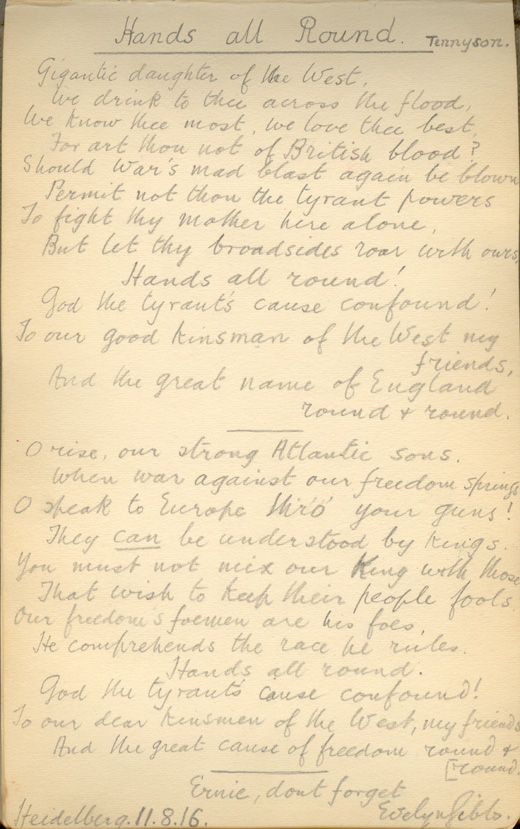 Hands all Round. Tennyson.
Gigantic daughter of the West,
We drink to thee across the flood,
We know thee most, we love thee best,
For art thou not of British blood?
Should War's mad blast again be blown
Permit not thou the tyrant powers
To fight thy mother here alone,
But let thy broadsides roar with ours.
Hands all round!
God the tyrant's cause confound!
To our good kinsman of the West my
friends,
And the great name of England
round & round.
O rise, our strong Atlantic sons.
When war against our freedom springs
O speak to Europe thro' your guns!
They can be understood by kings.
You must not mix our King with those
That wish to keep their people fools,
Our freedom's foemen are his foes,
He comprehends the race he rules.
Hands all round.
God the tyrant's cause confound!
To our dear kinsmen of the West, my friends
And the great cause of freedom round &
[round.
Ernie, dont forget
Heidelberg. 11.8.16. Evelyn Gibbs.